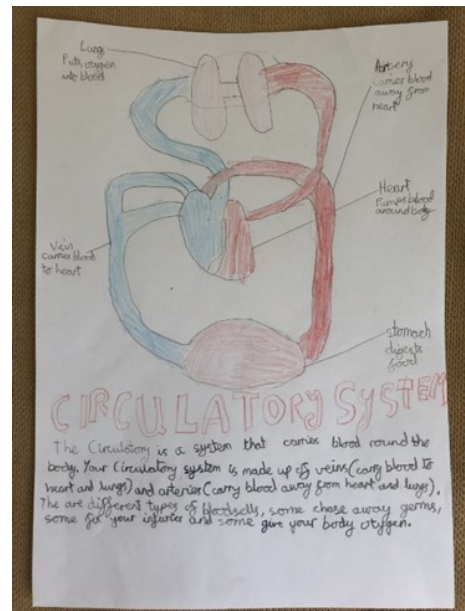 Lung
Puts oxygen
into blood
Artery
Carries blood
away from
heart
Heart
Pumps blood
around body
Vein
carries blood
to heart
stomach
digests
food
CIRCULATORY SYSTEM
The Circulatory is a system that carries blood round the
body. Your Circulatory system is made up of veins (carry blood to
heart and lungs) and arteries (carry blood away from heart and lungs).
The are different types of bloodsells, some chase away germs,
some fix your injuries and some give your body oxygen.